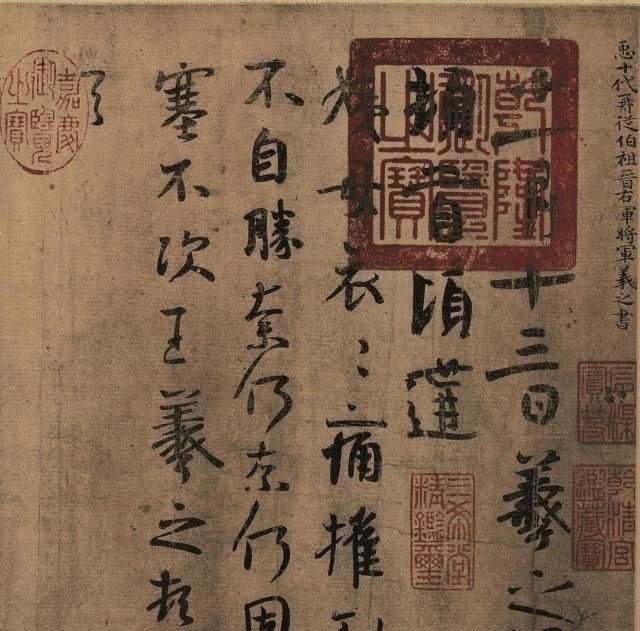 臣十代再從伯祖晉右軍將軍羲之書
十一月十三日羲之
頓首頃遘
姨母哀〻痛摧
不自勝奈何奈何因
塞不次王羲之頓
乾隆御覽之寶
石渠寶笈
乾清宮鑑藏寶
三希堂精鑑璽
嘉慶御覽之寶